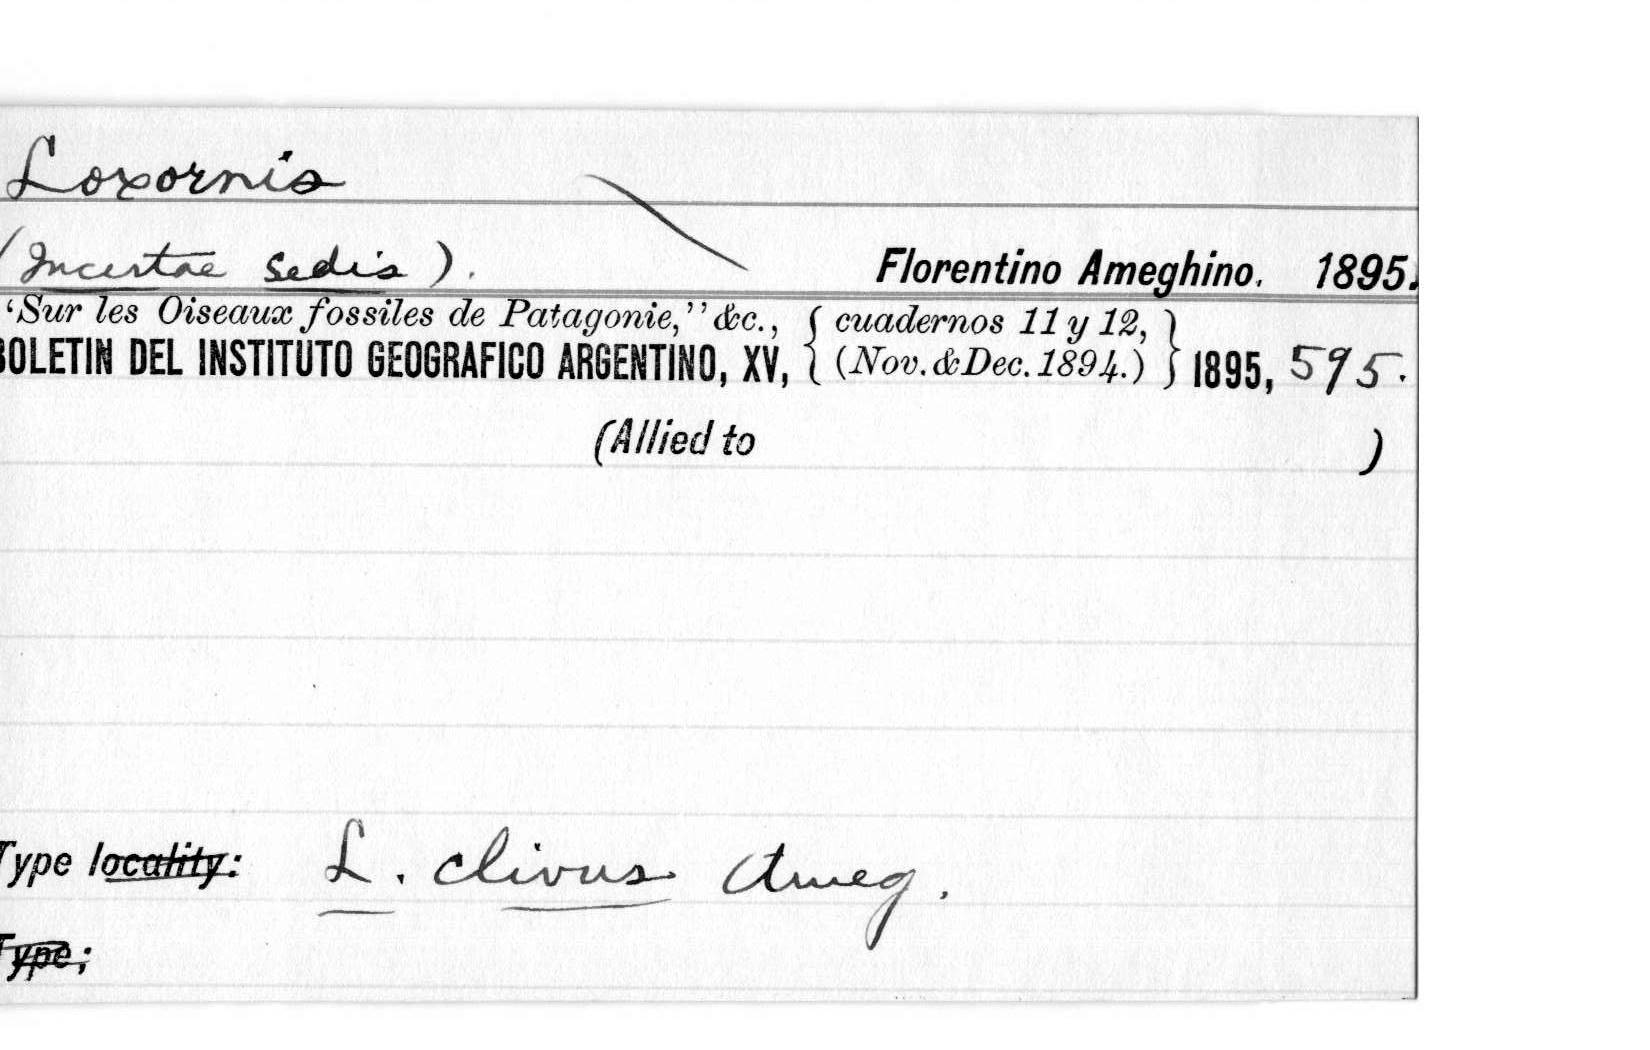 Loxornis
(Incertae Sedis). Florentino Ameghino. 1895.
‘Sur les Oiseaux fossiles de Patagonie,’’ &c., { cuadernos 11 y 12, }
BOLETIN DEL INSTITUTO GEOGRAFICO ARGENTINO, XV, { (Nov. & Dec. 1894.) } 1895, 595.
(Allied to )
Type locality: L. clivus Ameg.
Type;